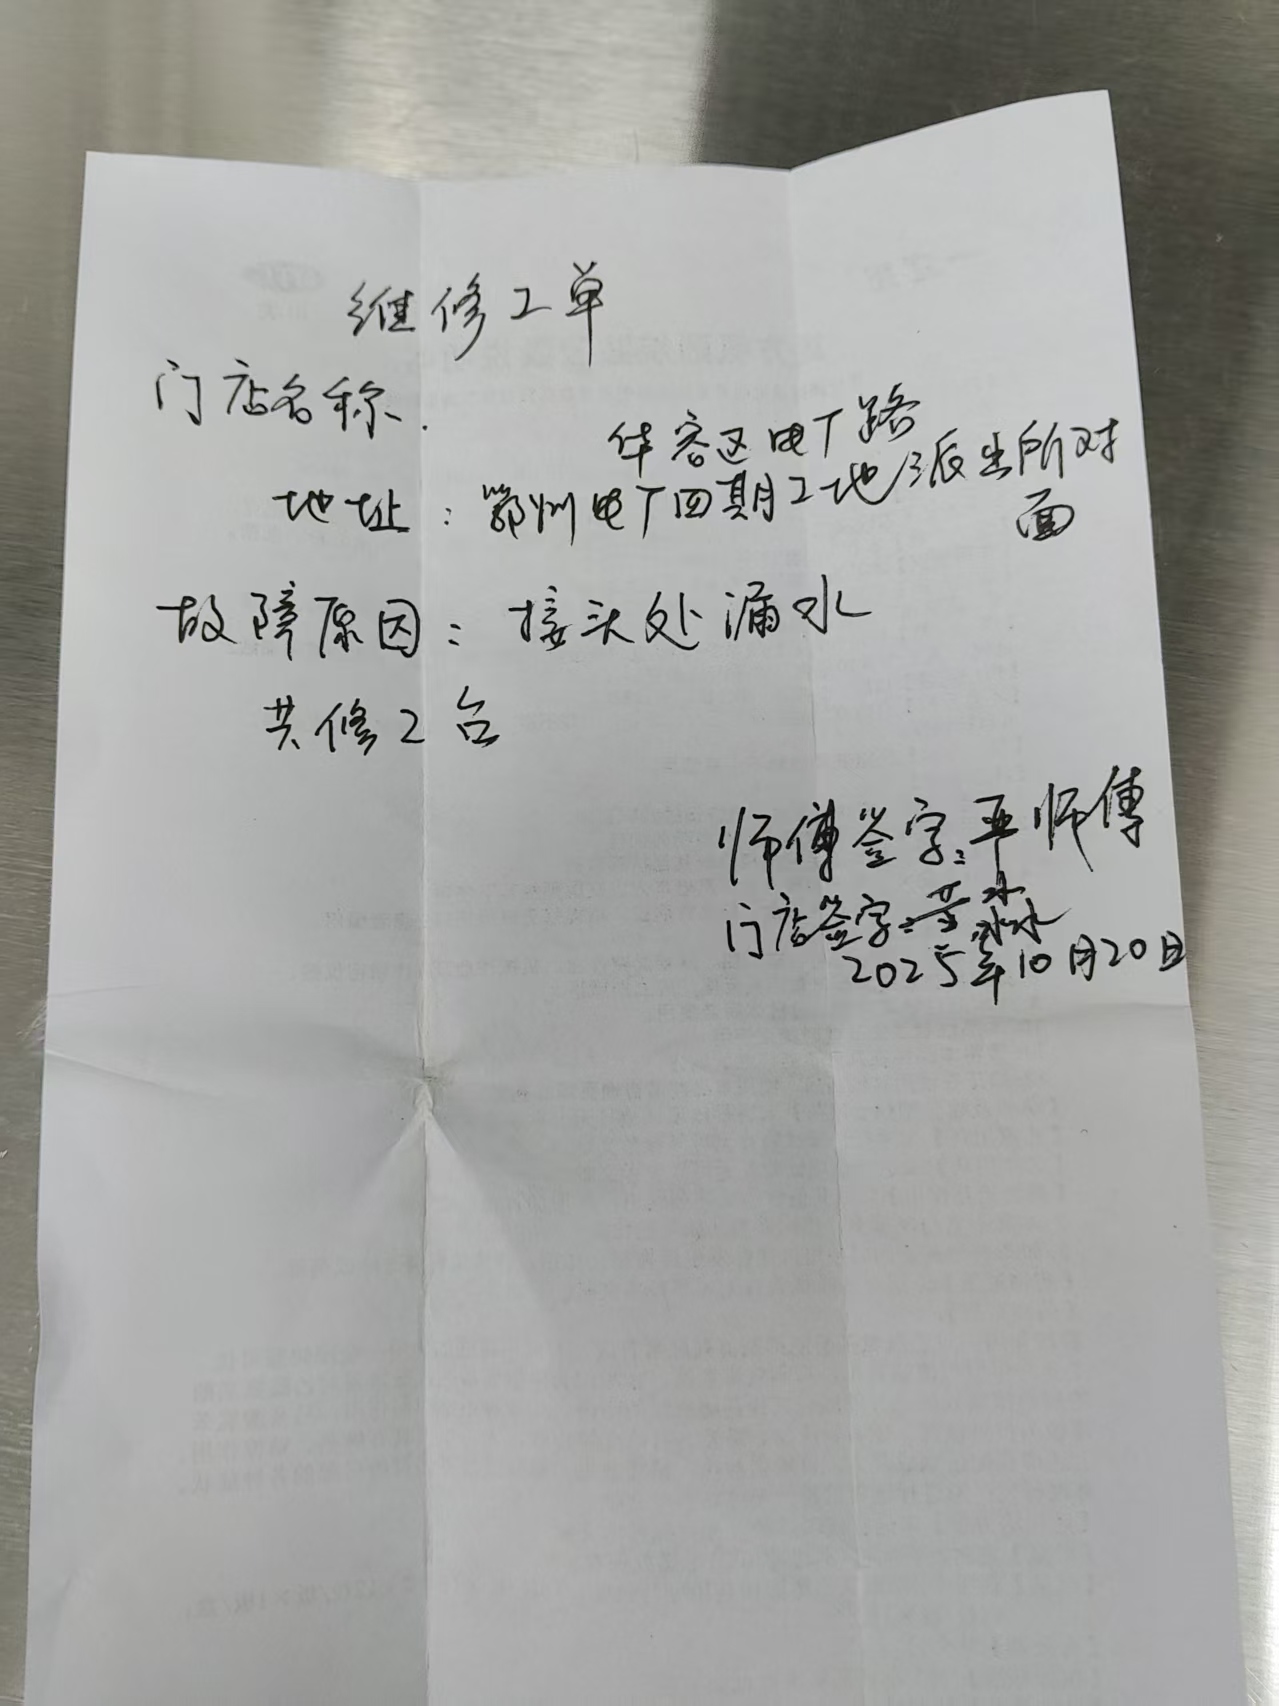 维修工单
门店名称.
华容区电厂路
地址：鄂州电厂四期工地派出所对
面
故障原因：接头处漏水
共修2台
师傅签字：平师傅
门店签字：黄淼
2025年10月20日